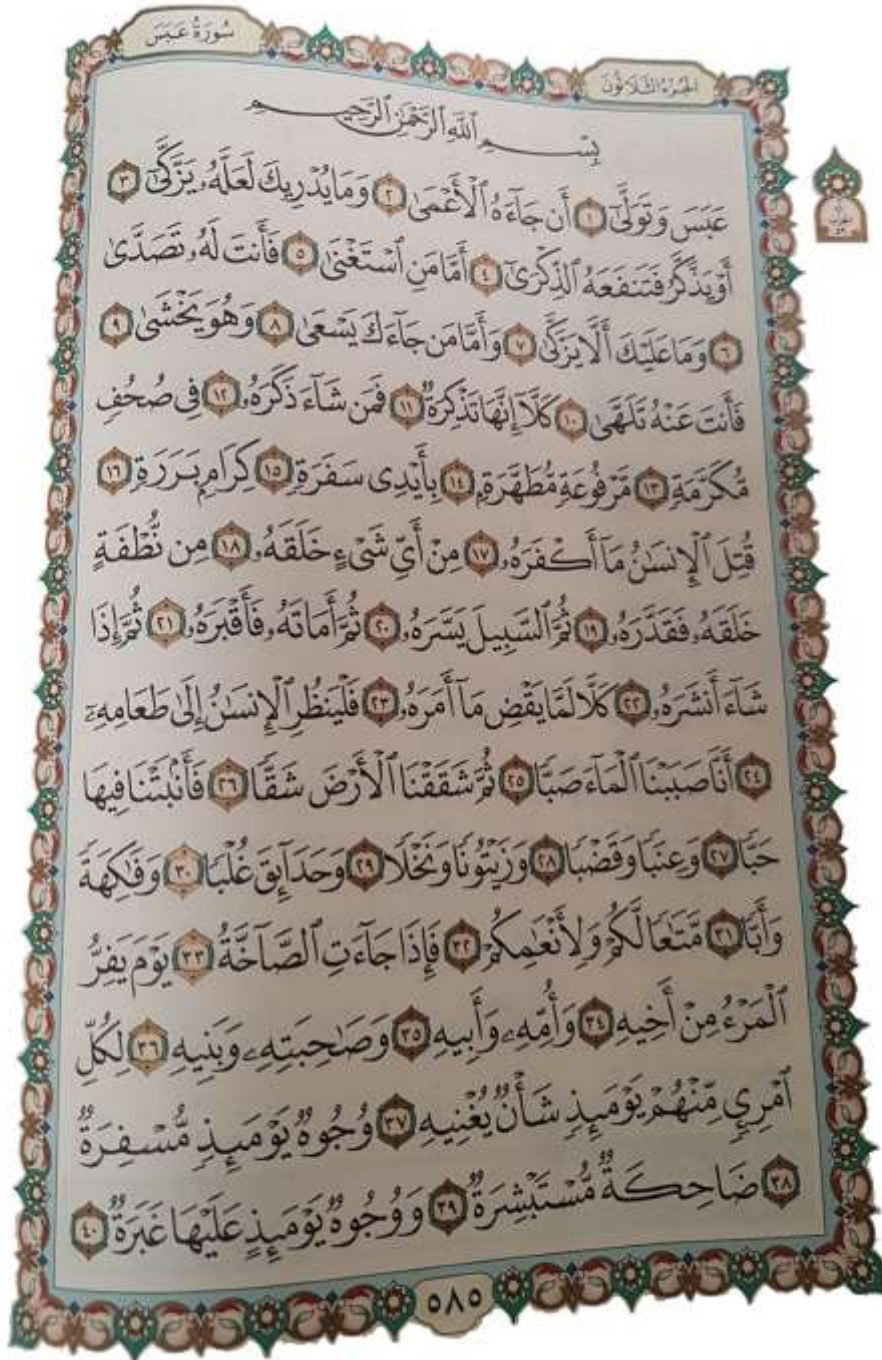 سُورَةُ عَبَسَ
الجُزْءُ الثَّلَاثُونَ
بِسْمِ ٱللَّهِ ٱلرَّحْمَٰنِ ٱلرَّحِيمِ
عَبَسَ وَتَوَلَّىٰٓ ١ أَن جَآءَهُ ٱلْأَعْمَىٰ ٢ وَمَا يُدْرِيكَ لَعَلَّهُۥ يَزَّكَّىٰٓ ٣
أَوْ يَذَّكَّرُ فَتَنفَعَهُ ٱلذِّكْرَىٰٓ ٤ أَمَّا مَنِ ٱسْتَغْنَىٰ ٥ فَأَنتَ لَهُۥ تَصَدَّىٰ
٦ وَمَا عَلَيْكَ أَلَّا يَزَّكَّىٰ ٧ وَأَمَّا مَن جَآءَكَ يَسْعَىٰ ٨ وَهُوَ يَخْشَىٰ ٩
فَأَنتَ عَنْهُ تَلَهَّىٰ ١٠ كَلَّآ إِنَّهَا تَذْكِرَةٌ ١١ فَمَن شَآءَ ذَكَرَهُۥ ١٢ فِى صُحُفٍ
مُّكَرَّمَةٍ ١٣ مَّرْفُوعَةٍ مُّطَهَّرَةٍۭ ١٤ بِأَيْدِى سَفَرَةٍ ١٥ كِرَامٍۭ بَرَرَةٍ ١٦
قُتِلَ ٱلْإِنسَٰنُ مَآ أَكْفَرَهُۥ ١٧ مِنْ أَىِّ شَىْءٍ خَلَقَهُۥ ١٨ مِن نُّطْفَةٍ
خَلَقَهُۥ فَقَدَّرَهُۥ ١٩ ثُمَّ ٱلسَّبِيلَ يَسَّرَهُۥ ٢٠ ثُمَّ أَمَاتَهُۥ فَأَقْبَرَهُۥ ٢١ ثُمَّ إِذَا
شَآءَ أَنشَرَهُۥ ٢٢ كَلَّا لَمَّا يَقْضِ مَآ أَمَرَهُۥ ٢٣ فَلْيَنظُرِ ٱلْإِنسَٰنُ إِلَىٰ طَعَامِهِۦٓ
٢٤ أَنَّا صَبَبْنَا ٱلْمَآءَ صَبًّا ٢٥ ثُمَّ شَقَقْنَا ٱلْأَرْضَ شَقًّا ٢٦ فَأَنۢبَتْنَا فِيهَا
حَبًّا ٢٧ وَعِنَبًا وَقَضْبًا ٢٨ وَزَيْتُونًا وَنَخْلًا ٢٩ وَحَدَآئِقَ غُلْبًا ٣٠ وَفَٰكِهَةً
وَأَبًّا ٣١ مَّتَٰعًا لَّكُمْ وَلِأَنْعَٰمِكُمْ ٣٢ فَإِذَا جَآءَتِ ٱلصَّآخَّةُ ٣٣ يَوْمَ يَفِرُّ
ٱلْمَرْءُ مِنْ أَخِيهِ ٣٤ وَأُمِّهِۦ وَأَبِيهِ ٣٥ وَصَٰحِبَتِهِۦ وَبَنِيهِ ٣٦ لِكُلِّ
ٱمْرِئٍ مِّنْهُمْ يَوْمَئِذٍ شَأْنٌ يُغْنِيهِ ٣٧ وُجُوهٌ يَوْمَئِذٍ مُّسْفِرَةٌ
٣٨ ضَاحِكَةٌ مُّسْتَبْشِرَةٌ ٣٩ وَوُجُوهٌ يَوْمَئِذٍ عَلَيْهَا غَبَرَةٌ ٤٠
٥٨٥